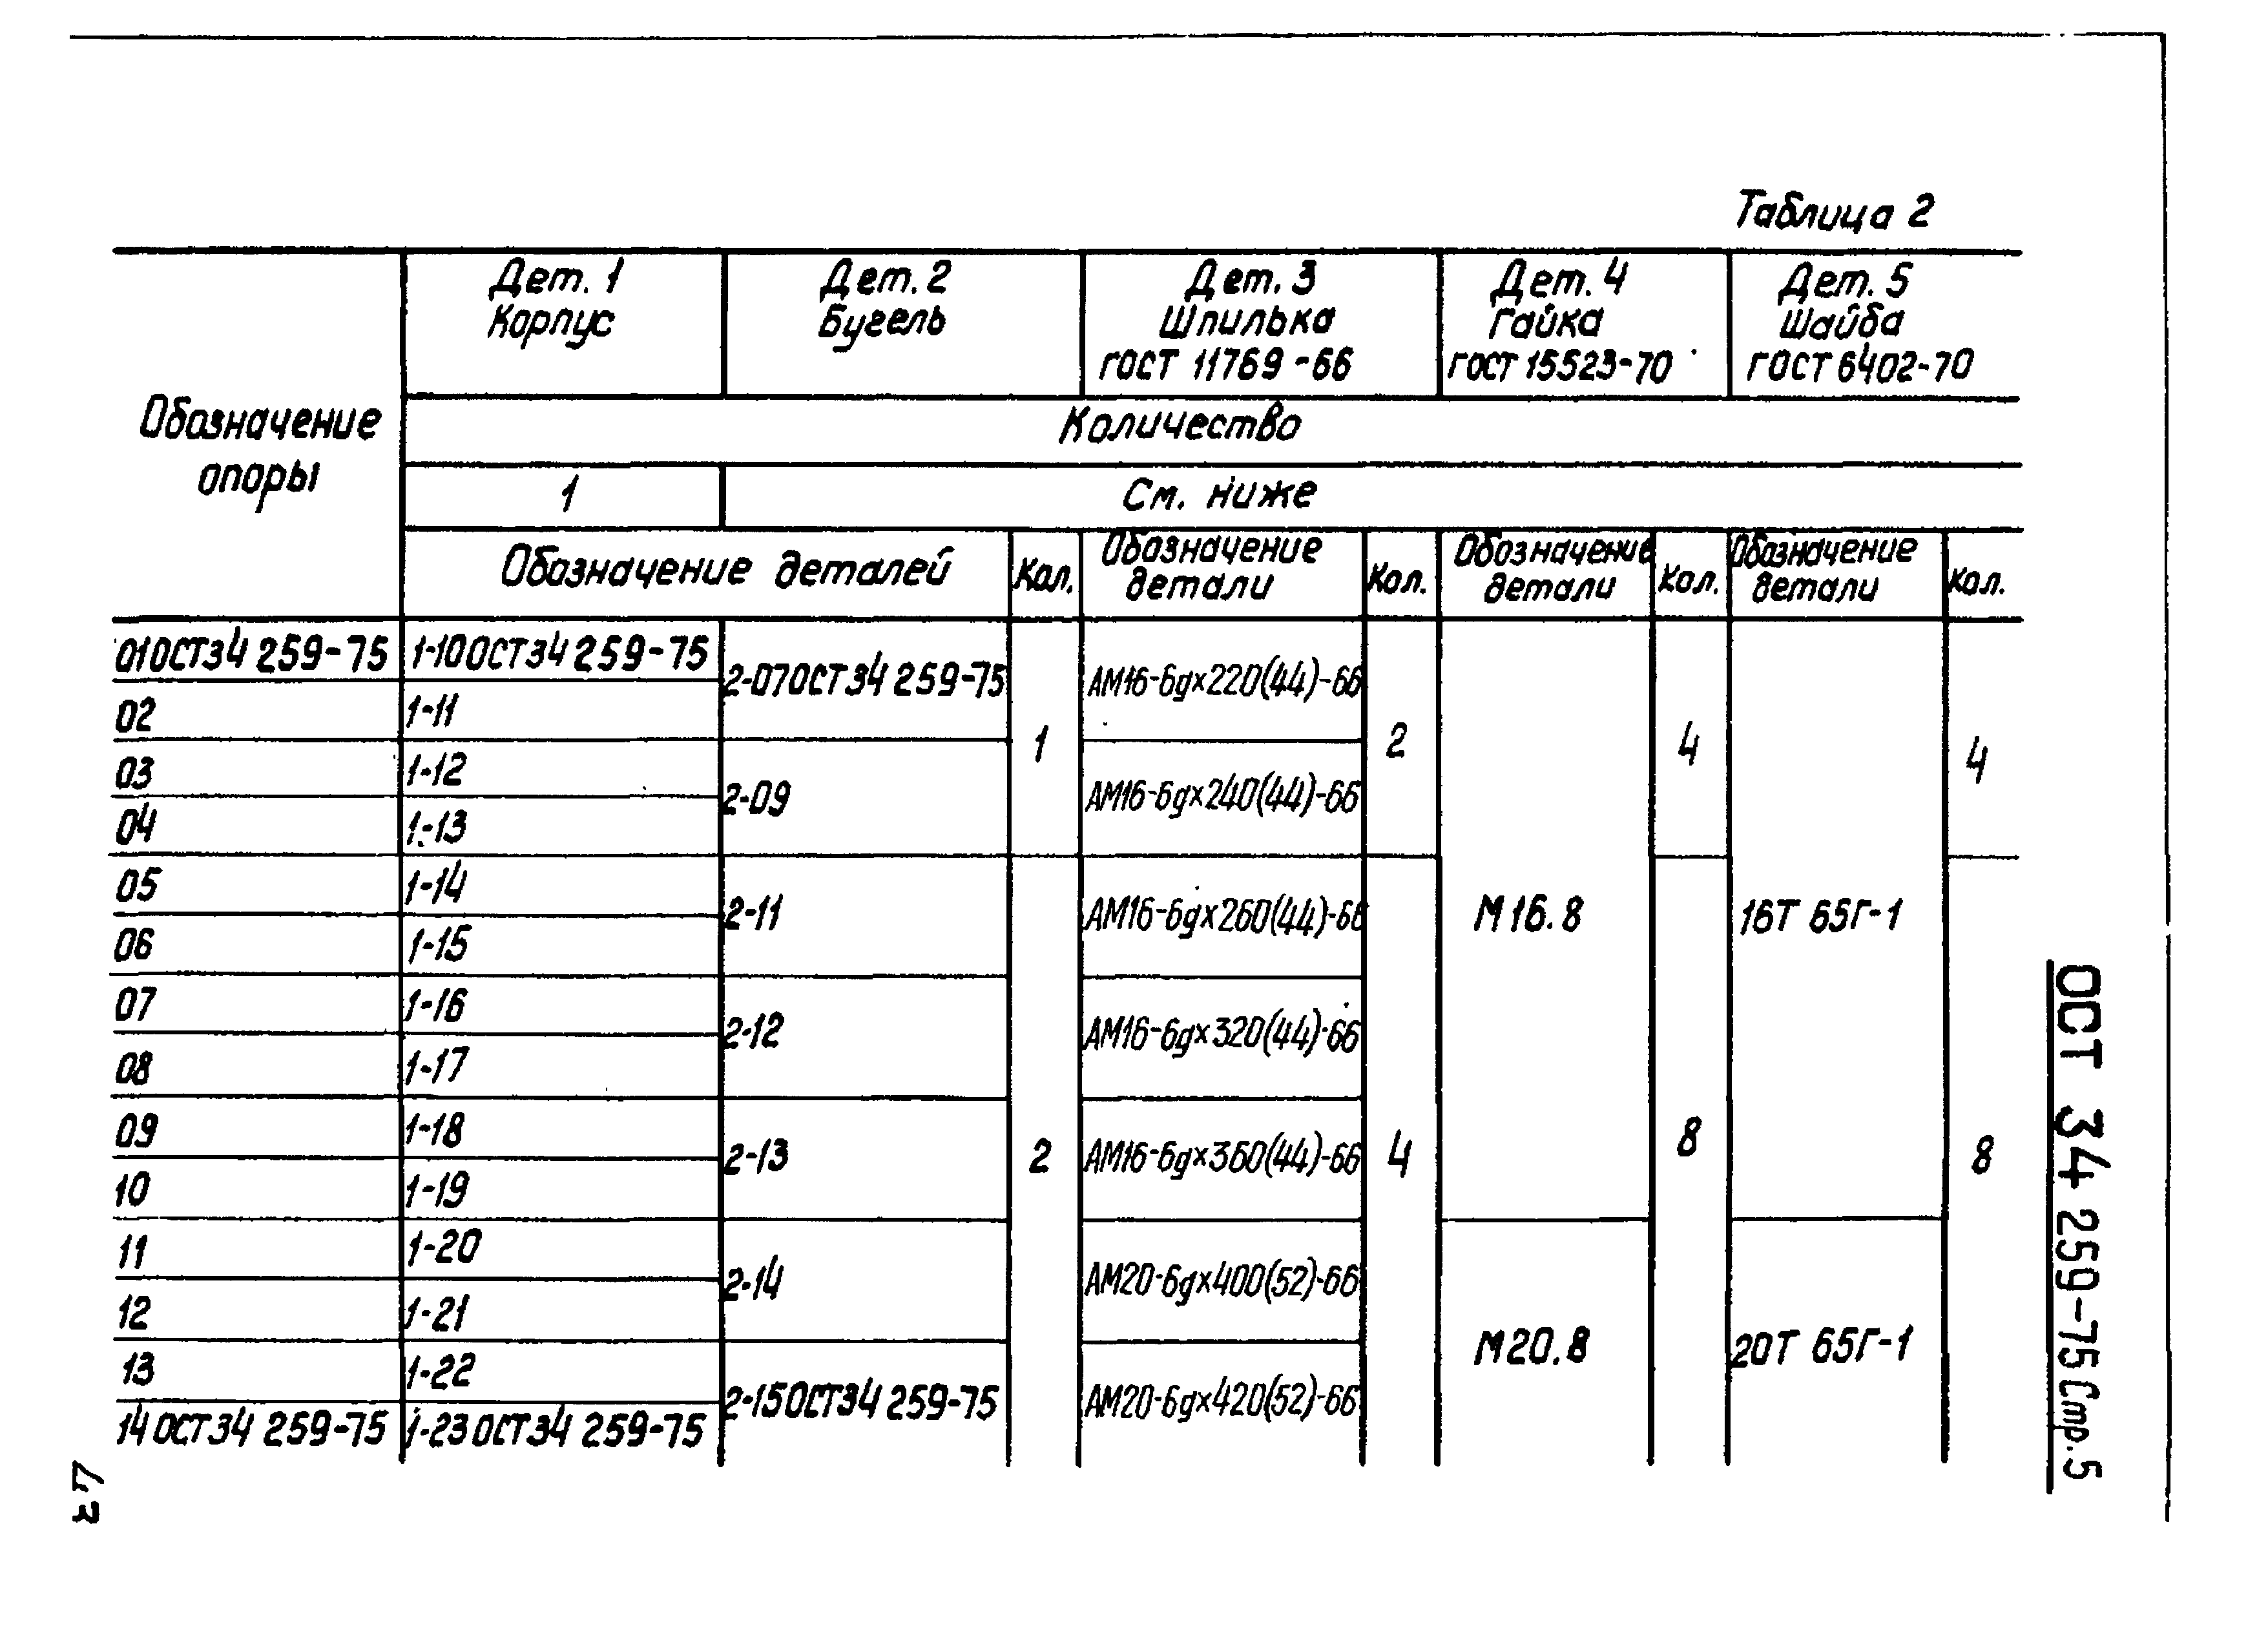 Таблица 2
Дет. 1
Корпус
Дет. 2
Бугель
Дет. 3
Шпилька
ГОСТ 11769-66
Дет. 4
Гайка
ГОСТ 15523-70
Дет. 5
Шайба
ГОСТ 6402-70
Обозначение
опоры
Количество
1
См. ниже
Обозначение деталей
Кол.
Обозначение
детали
Кол.
Обозначение
детали
Кол.
Обозначение
детали
Кол.
01 ОСТ 34 259-75
1-10 ОСТ 34 259-75
2-07 ОСТ 34 259-75
1
АМ16-6g×220(44)-66
2
4
4
02
1-11
03
1-12
2-09
АМ16-6g×240(44)-66
04
1-13
05
1-14
2-11
АМ16-6g×260(44)-66
М16.8
16Т 65Г-1
06
1-15
07
1-16
2-12
АМ16-6g×320(44)-66
08
1-17
09
1-18
2-13
2
АМ16-6g×360(44)-66
4
8
8
10
1-19
11
1-20
2-14
АМ20-6g×400(52)-66
12
1-21
М20.8
20Т 65Г-1
13
1-22
2-15 ОСТ 34 259-75
АМ20-6g×420(52)-66
14 ОСТ 34 259-75
1-23 ОСТ 34 259-75
ОСТ 34 259-75 Стр. 5